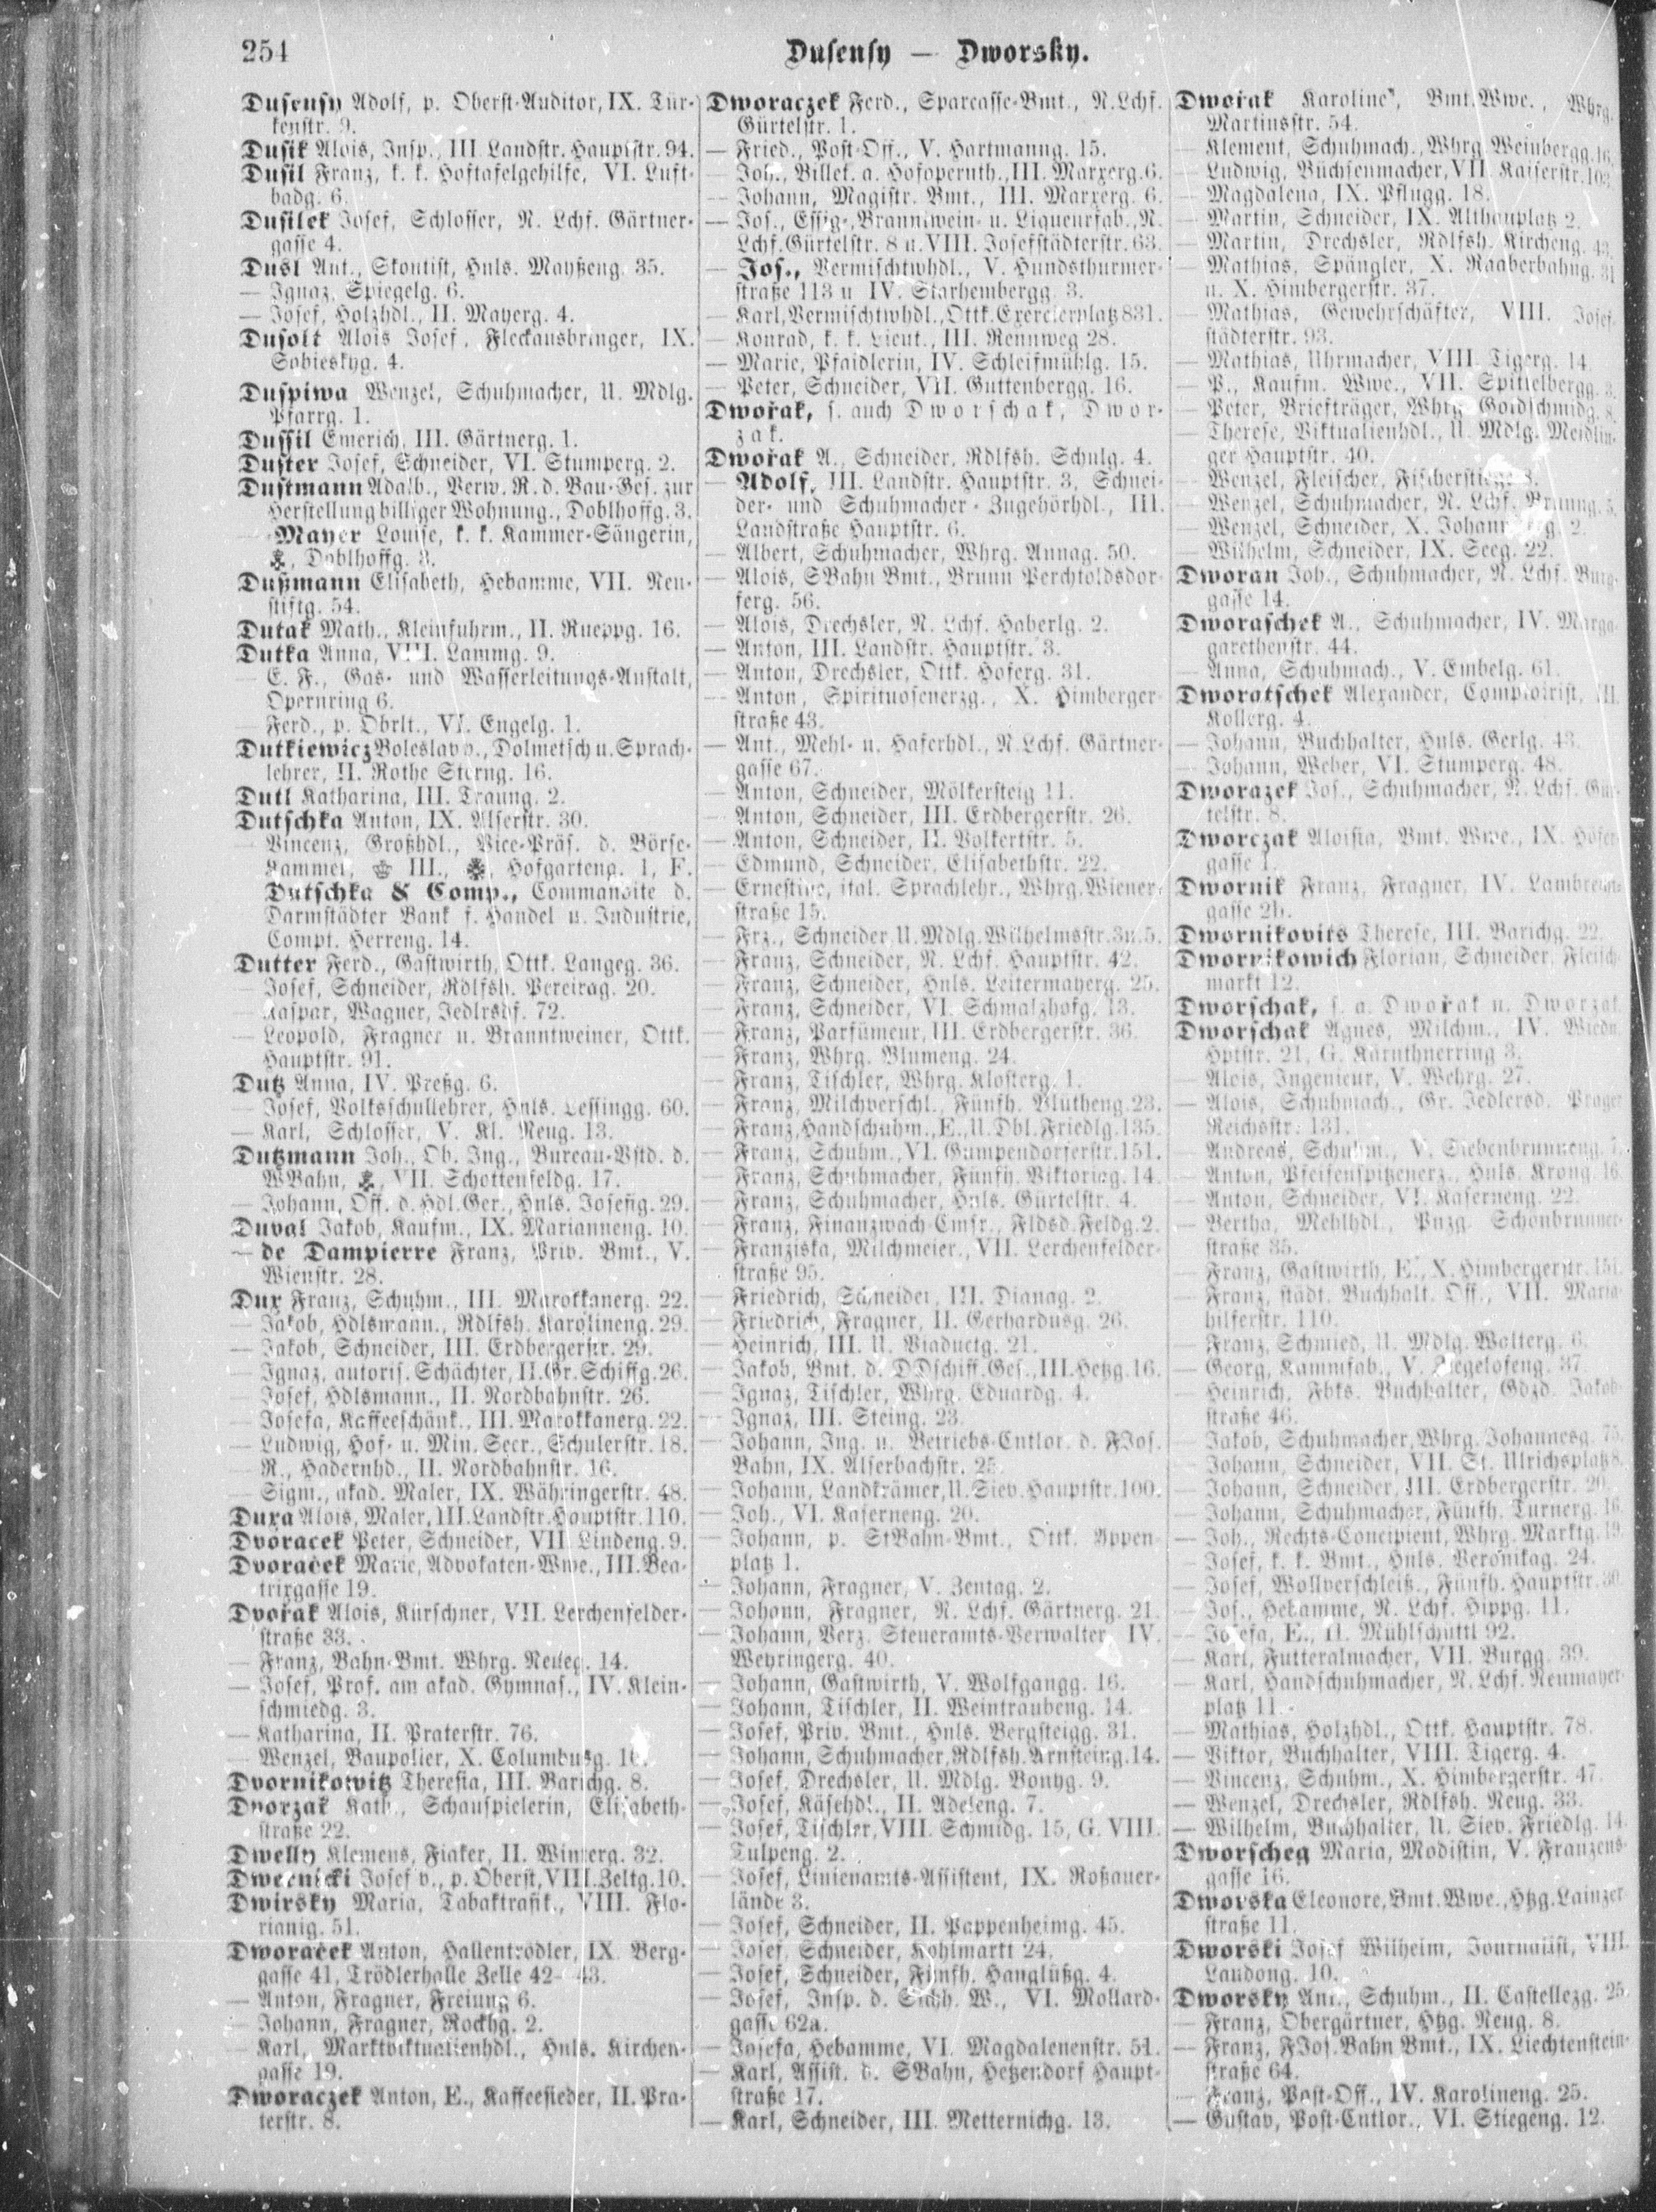 254
Dusensy — Dworsky.
Dusensy Adolf, p. Oberst-Auditor, IX. Tür-
kenstr. 9.
Dusik Alois, Insp., III. Landstr. Hauptstr. 94.
Dusil Franz, k. k. Hoftafelgehilfe, VI. Luft-
badg. 6.
Dusilek Josef, Schlosser, N. Lchf. Gärtner-
gasse 4.
Dusl Ant., Skontist, Hnls. Mayßeng. 35.
— Ignaz, Spiegelg. 6.
— Josef, Holzhdl., II. Mayerg. 4.
Dusolt Alois Josef, Fleckausbringer, IX.
Sobieskyg. 4.
Duspiwa Wenzel, Schuhmacher, U. Mdlg.
Pfarrg. 1.
Dussil Emerich, III. Gärtnerg. 1.
Duster Josef, Schneider, VI. Stumperg. 2.
Dustmann Adalb., Verw. R. d. Bau-Ges. zur
Herstellung billiger Wohnung., Doblhoffg. 3.
— -Mayer Louise, k. k. Kammer-Sängerin,
Doblhoffg. 3.
Dußmann Elisabeth, Hebamme, VII. Neu-
stiftg. 54.
Dutak Math., Kleinfuhrm., II. Rueppg. 16.
Dutka Anna, VIII. Lammg. 9.
— E. F., Gas- und Wasserleitungs-Anstalt,
Opernring 6.
— Ferd., p. Obrlt., VI. Engelg. 1.
Dutkiewicz Boleslav v., Dolmetsch u. Sprach-
lehrer, II. Rothe Sterng. 16.
Dutl Katharina, III. Traung. 2.
Dutschka Anton, IX. Alserstr. 30.
— Vincenz, Großhdl., Vice-Präs. d. Börse-
Kammer, III., Hofgarteng. 1, F.
Dutschka & Comp., Commandite d.
Darmstädter Bank f. Handel u. Industrie,
Compt. Herreng. 14.
Dutter Ferd., Gastwirth, Ottk. Langeg. 36.
— Josef, Schneider, Rdlfsh. Pereirag. 20.
— Kaspar, Wagner, Jedlrsdf. 72.
— Leopold, Fragner u. Branntweiner, Ottk.
Hauptstr. 91.
Dutz Anna, IV. Preßg. 6.
— Josef, Volksschullehrer, Hnls. Lessingg. 60.
— Karl, Schlosser, V. Kl. Neug. 13.
Dutzmann Joh., Ob. Ing., Bureau-Vstd. d.
WBahn, VII. Schottenfeldg. 17.
— Johann, Off. d. Hdl. Ger., Hnls. Josefig. 29.
Duval Jakob, Kaufm., IX. Marianneng. 10.
— de Dampierre Franz, Priv. Bmt., V.
Wienstr. 28.
Dux Franz, Schuhm., III. Marokkanerg. 22.
— Jakob, Hdlsmann., Rdlfsh. Karolineng. 29.
— Jakob, Schneider, III. Erdbergerstr. 29.
— Ignaz, autoris. Schächter, II. Gr. Schiffg. 26.
— Josef, Hdlsmann., II. Nordbahnstr. 26.
— Josefa, Kaffeeschänk., III. Marokkanerg. 22.
— Ludwig, Hof- u. Min. Secr., Schulerstr. 18.
— R., Hadernhd., II. Nordbahnstr. 16.
— Sigm., akad. Maler, IX. Währingerstr. 48.
Duxa Alois, Maler, III. Landstr. Hauptstr. 110.
Dvoracek Peter, Schneider, VII. Lindeng. 9.
Dvoraček Marie, Advokaten-Wwe., III. Bea-
trixgasse 19.
Dvořak Alois, Kürschner, VII. Lerchenfelder-
straße 33.
— Franz, Bahn-Bmt. Whrg. Neueg. 14.
— Josef, Prof. am akad. Gymnas., IV. Klein-
schmiedg. 3.
— Katharina, II. Praterstr. 76.
— Wenzel, Baupolier, X. Columbusg.
Dvornikowitz Theresia, III. Barichg. 8.
Dvorzak Kath., Schauspielerin, Elisabeth-
straße 22.
Dwelly Klemens, Fiaker, II. Winterg. 32.
Dwernicki Josef v., p. Oberst, VIII. Zeltg. 10.
Dwirsky Maria, Tabaktrafik., VIII. Flo-
rianig. 51.
Dworaček Anton, Hallentrödler, IX. Berg-
gasse 41, Trödlerhalle Zelle 42–43.
— Anton, Fragner, Freiung 6.
— Johann, Fragner, Rockhg. 2.
— Karl, Marktviktualienhdl., Hnls. Kirchen-
gasse 19.
Dworaczek Anton, E., Kaffeesieder, II. Pra-
terstr. 8.
Dworaczek Ferd., Sparcasse-Bmt., N. Lchf.
Gürtelstr. 1.
— Fried., Post-Off., V. Hartmanng. 15.
— Joh., Billet. a. Hofopernth., III. Marxerg. 6.
— Johann, Magistr. Bmt., III. Marxerg. 6.
— Jos., Essig-, Branntwein- u. Liqueurfab., N.
Lchf. Gürtelstr. 8 u. VIII. Josefstädterstr. 63.
— Jos., Vermischtwhdl., V. Hundsthurmer-
straße 113 u. IV. Starhembergg. 3.
— Karl, Vermischtwhdl., Ottk. Exercierplatz 831.
— Konrad, k. k. Lieut., III. Rennweg 28.
— Marie, Pfaidlerin, IV. Schleifmühlg. 15.
— Peter, Schneider, VII. Guttenbergg. 16.
Dwořak, s. auch Dworschak, Dwor-
zak.
Dwořak A., Schneider, Rdlfsh. Schulg. 4.
— Adolf, III. Landstr. Hauptstr. 3, Schnei-
der- und Schuhmacher-Zugehörhdl., III.
Landstraße Hauptstr. 6.
— Albert, Schuhmacher, Whrg. Annag. 50.
— Alois, SBahn Bmt., Brunn Perchtoldsdor-
ferg. 56.
— Alois, Drechsler, N. Lchf. Haberlg. 2.
— Anton, III. Landstr. Hauptstr. 3.
— Anton, Drechsler, Ottk. Hoferg. 31.
— Anton, Spirituosenerzg., X. Himberger-
straße 43.
— Ant., Mehl- u. Haferhdl., N. Lchf. Gärtner-
gasse 67.
— Anton, Schneider, Mölkersteig 11.
— Anton, Schneider, III. Erdbergerstr. 26.
— Anton, Schneider, II. Volkertstr. 5.
— Edmund, Schneider, Elisabethstr. 22.
— Ernestine, ital. Sprachlehr., Whrg. Wiener-
straße 15.
— Frz., Schneider, U. Mdlg. Wilhelmsstr. 3 u. 5.
— Franz, Schneider, N. Lchf. Hauptstr. 42.
— Franz, Schneider, Hnls. Leitermayerg. 25.
— Franz, Schneider, VI. Schmalzhofg. 13.
— Franz, Parfümeur, III. Erdbergerstr. 36.
— Franz, Whrg. Blumeng. 24.
— Franz, Tischler, Whrg. Klosterg. 1.
— Franz, Milchverschl., Fünfh. Blütheng. 23.
— Franz, Handschuhm., E., U. Dbl. Friedlg. 135.
— Franz, Schuhm., VI. Gumpendorferstr. 151.
— Franz, Schuhmacher, Fünfh. Viktoriag. 14.
— Franz, Schuhmacher, Hnls. Gürtelstr. 4.
— Franz, Finanzwach-Comsr., Fldsd. Feldg. 2.
— Franziska, Milchmeier., VII. Lerchenfelder-
straße 95.
— Friedrich, Schneider, III. Dianag. 2.
— Friedrich, Fragner, II. Gerhardusg. 26.
— Heinrich, III. U. Viaductg. 21.
— Jakob, Bmt. d. DDschiff. Ges., III. Hetzg. 16.
— Ignaz, Tischler, Whrg. Eduardg. 4.
— Ignaz, III. Steing. 23.
— Johann, Ing. u. Betriebs-Cntlor. d. FJos.
Bahn, IX. Alserbachstr. 25.
— Johann, Landkrämer, U. Siev. Hauptstr. 100.
— Joh., VI. Kaserneng. 20.
— Johann, p. StBahn-Bmt., Ottk. Yppen-
platz 1.
— Johann, Fragner, V. Zentag. 2.
— Johann, Fragner, N. Lchf. Gärtnerg. 21.
— Johann, Verz. Steueramts-Verwalter, IV.
Weyringerg. 40.
— Johann, Gastwirth, V. Wolfgangg. 16.
— Johann, Tischler, II. Weintraubeng. 14.
— Josef, Priv. Bmt., Hnls. Bergsteigg. 31.
— Johann, Schuhmacher, Rdlfsh. Arnsteing. 14.
— Josef, Drechsler, U. Mdlg. Bonyg. 9.
— Josef, Käsehdl., II. Adeleng. 7.
— Josef, Tischler, VIII. Schmidg. 15, G. VIII.
Tulpeng. 2.
— Josef, Linienamts-Assistent, IX. Roßauer-
lände 3.
— Josef, Schneider, II. Pappenheimg. 45.
— Josef, Schneider, Kohlmarkt 24.
— Josef, Schneider, Fünfh. Hanglüßg. 4.
— Josef, Insp. d. W., VI. Mollard-
gasse 62a.
— Josefa, Hebamme, VI. Magdalenenstr. 51.
— Karl, Assist. d. SBahn, Hetzendorf Haupt-
straße 17.
— Karl, Schneider, III. Metternichg. 13.
Dwořak Karoline, Bmt. Wwe., Whrg.
Martinsstr. 54.
— Klement, Schuhmach., Whrg. Weinbergg. 16.
— Ludwig, Büchsenmacher, VII. Kaiserstr.
— Magdalena, IX. Pflugg. 18.
— Martin, Schneider, IX. Althanplatz 2.
— Martin, Drechsler, Rdlfsh. Kircheng. 43.
— Mathias, Spängler, X. Raaberbahng. 31
u. X. Himbergerstr. 37.
— Mathias, Gewehrschäfter, VIII. Josef-
städterstr. 93.
— Mathias, Uhrmacher, VIII. Tigerg. 14.
— P., Kaufm. Wwe., VII. Spittelbergg. 3.
— Peter, Briefträger, Whrg. Goldschmidg. 8.
— Therese, Viktualienhdl., U. Mdlg. Meidlin-
ger Hauptstr. 40.
— Wenzel, Fleischer, Fischerstiege 3.
— Wenzel, Schuhmacher, N. Lchf. Brunng. 5.
— Wenzel, Schneider, X. 2.
— Wilhelm, Schneider, IX. Seeg. 22.
Dworan Joh., Schuhmacher, N. Lchf. Burg-
gasse 14.
Dworaschek A., Schuhmacher, IV. Marga-
garethenstr. 44.
— Anna, Schuhmach., V. Embelg. 61.
Dworatschek Alexander, Comptoirist, III.
Kollerg. 4.
— Johann, Buchhalter, Hnls. Gerlg. 43.
— Johann, Weber, VI. Stumperg. 48.
Dworazek Jos., Schuhmacher, N. Lchf. Gür-
telstr. 8.
Dworczak Aloisia, Bmt. Wwe., IX. Höfer-
gasse 1.
Dwornik Franz, Fragner, IV. Lambrecht-
gasse 2b.
Dwornikovits Therese, III. Barichg. 22.
Dwornikowich Florian, Schneider, Fleisch-
markt 12.
Dworschak, s. a. Dwořak u. Dworzak.
Dworschak Agnes, Milchm., IV. Wiedn.
Hptstr. 21, G. Kärnthnerring 3.
— Alois, Ingenieur, V. Wehrg. 27.
— Alois, Schuhmach., Gr. Jedlersd. Prager
Reichsstr. 131.
— Andreas, Schuhm., V. Siebenbrunneng. 7.
— Anton, Pfeifenspitzenerz., Hnls. Krong. 16.
— Anton, Schneider, VI. Kaserneng. 22.
— Bertha, Mehlhdl., Pnzg. Schönbrunner-
straße 35.
— Franz, Gastwirth, E., X. Himbergerstr. 151.
— Franz, städt. Buchhalt. Off., VII. Maria-
hilferstr. 110.
— Franz, Schmied, U. Mdlg. Walterg. 6.
— Georg, Kammfab., V. Ziegelofeng. 37.
— Heinrich, Fbks. Buchhalter, Gdzd. Jakob-
straße 46.
— Jakob, Schuhmacher, Whrg. Johannesg. 75.
— Johann, Schneider, VII. St. Ulrichsplatz 8.
— Johann, Schneider, III. Erdbergerstr. 20.
— Johann, Schuhmacher, Fünfh. Turnerg. 16.
— Joh., Rechts-Concipient, Whrg. Marktg. 19.
— Josef, k. k. Bmt., Hnls. Veronikag. 24.
— Josef, Wollverschleiß., Fünfh. Hauptstr. 30.
— Jos., Hebamme, N. Lchf. Hippg. 11.
— Josefa, E., II. Mühlschüttl 92.
— Karl, Futteralmacher, VII. Burgg. 39.
— Karl, Handschuhmacher, N. Lchf. Neumayer-
platz 11.
— Mathias, Holzhdl., Ottk. Hauptstr. 78.
— Viktor, Buchhalter, VIII. Tigerg. 4.
— Vincenz, Schuhm., X. Himbergerstr. 47.
— Wenzel, Drechsler, Rdlfsh. Neug. 33.
— Wilhelm, Buchhalter, U. Siev. Friedlg. 14.
Dworscheg Maria, Modistin, V. Franzens-
gasse 16.
Dworska Eleonore, Bmt. Wwe., Htzg. Lainzer-
straße 11.
Dworski Josef Wilhelm, Journalist, VIII.
Laudong. 10.
Dworsky Ant., Schuhm., II. Castellezg. 25.
— Franz, Obergärtner, Htzg. Neug. 8.
— Franz, FJos. Bahn Bmt., IX. Liechtenstein-
straße 64.
— Franz, Post-Off., IV. Karolineng. 25.
— Gustav, Post-Cntlor., VI. Stiegeng. 12.